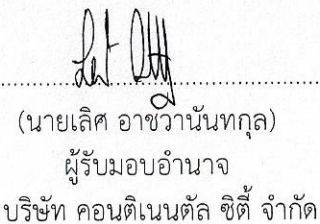 (นายเลิศ อาชวานันทกุล)
ผู้รับมอบอำนาจ
บริษัท คอนติเนนตัล ซิตี้ จำกัด